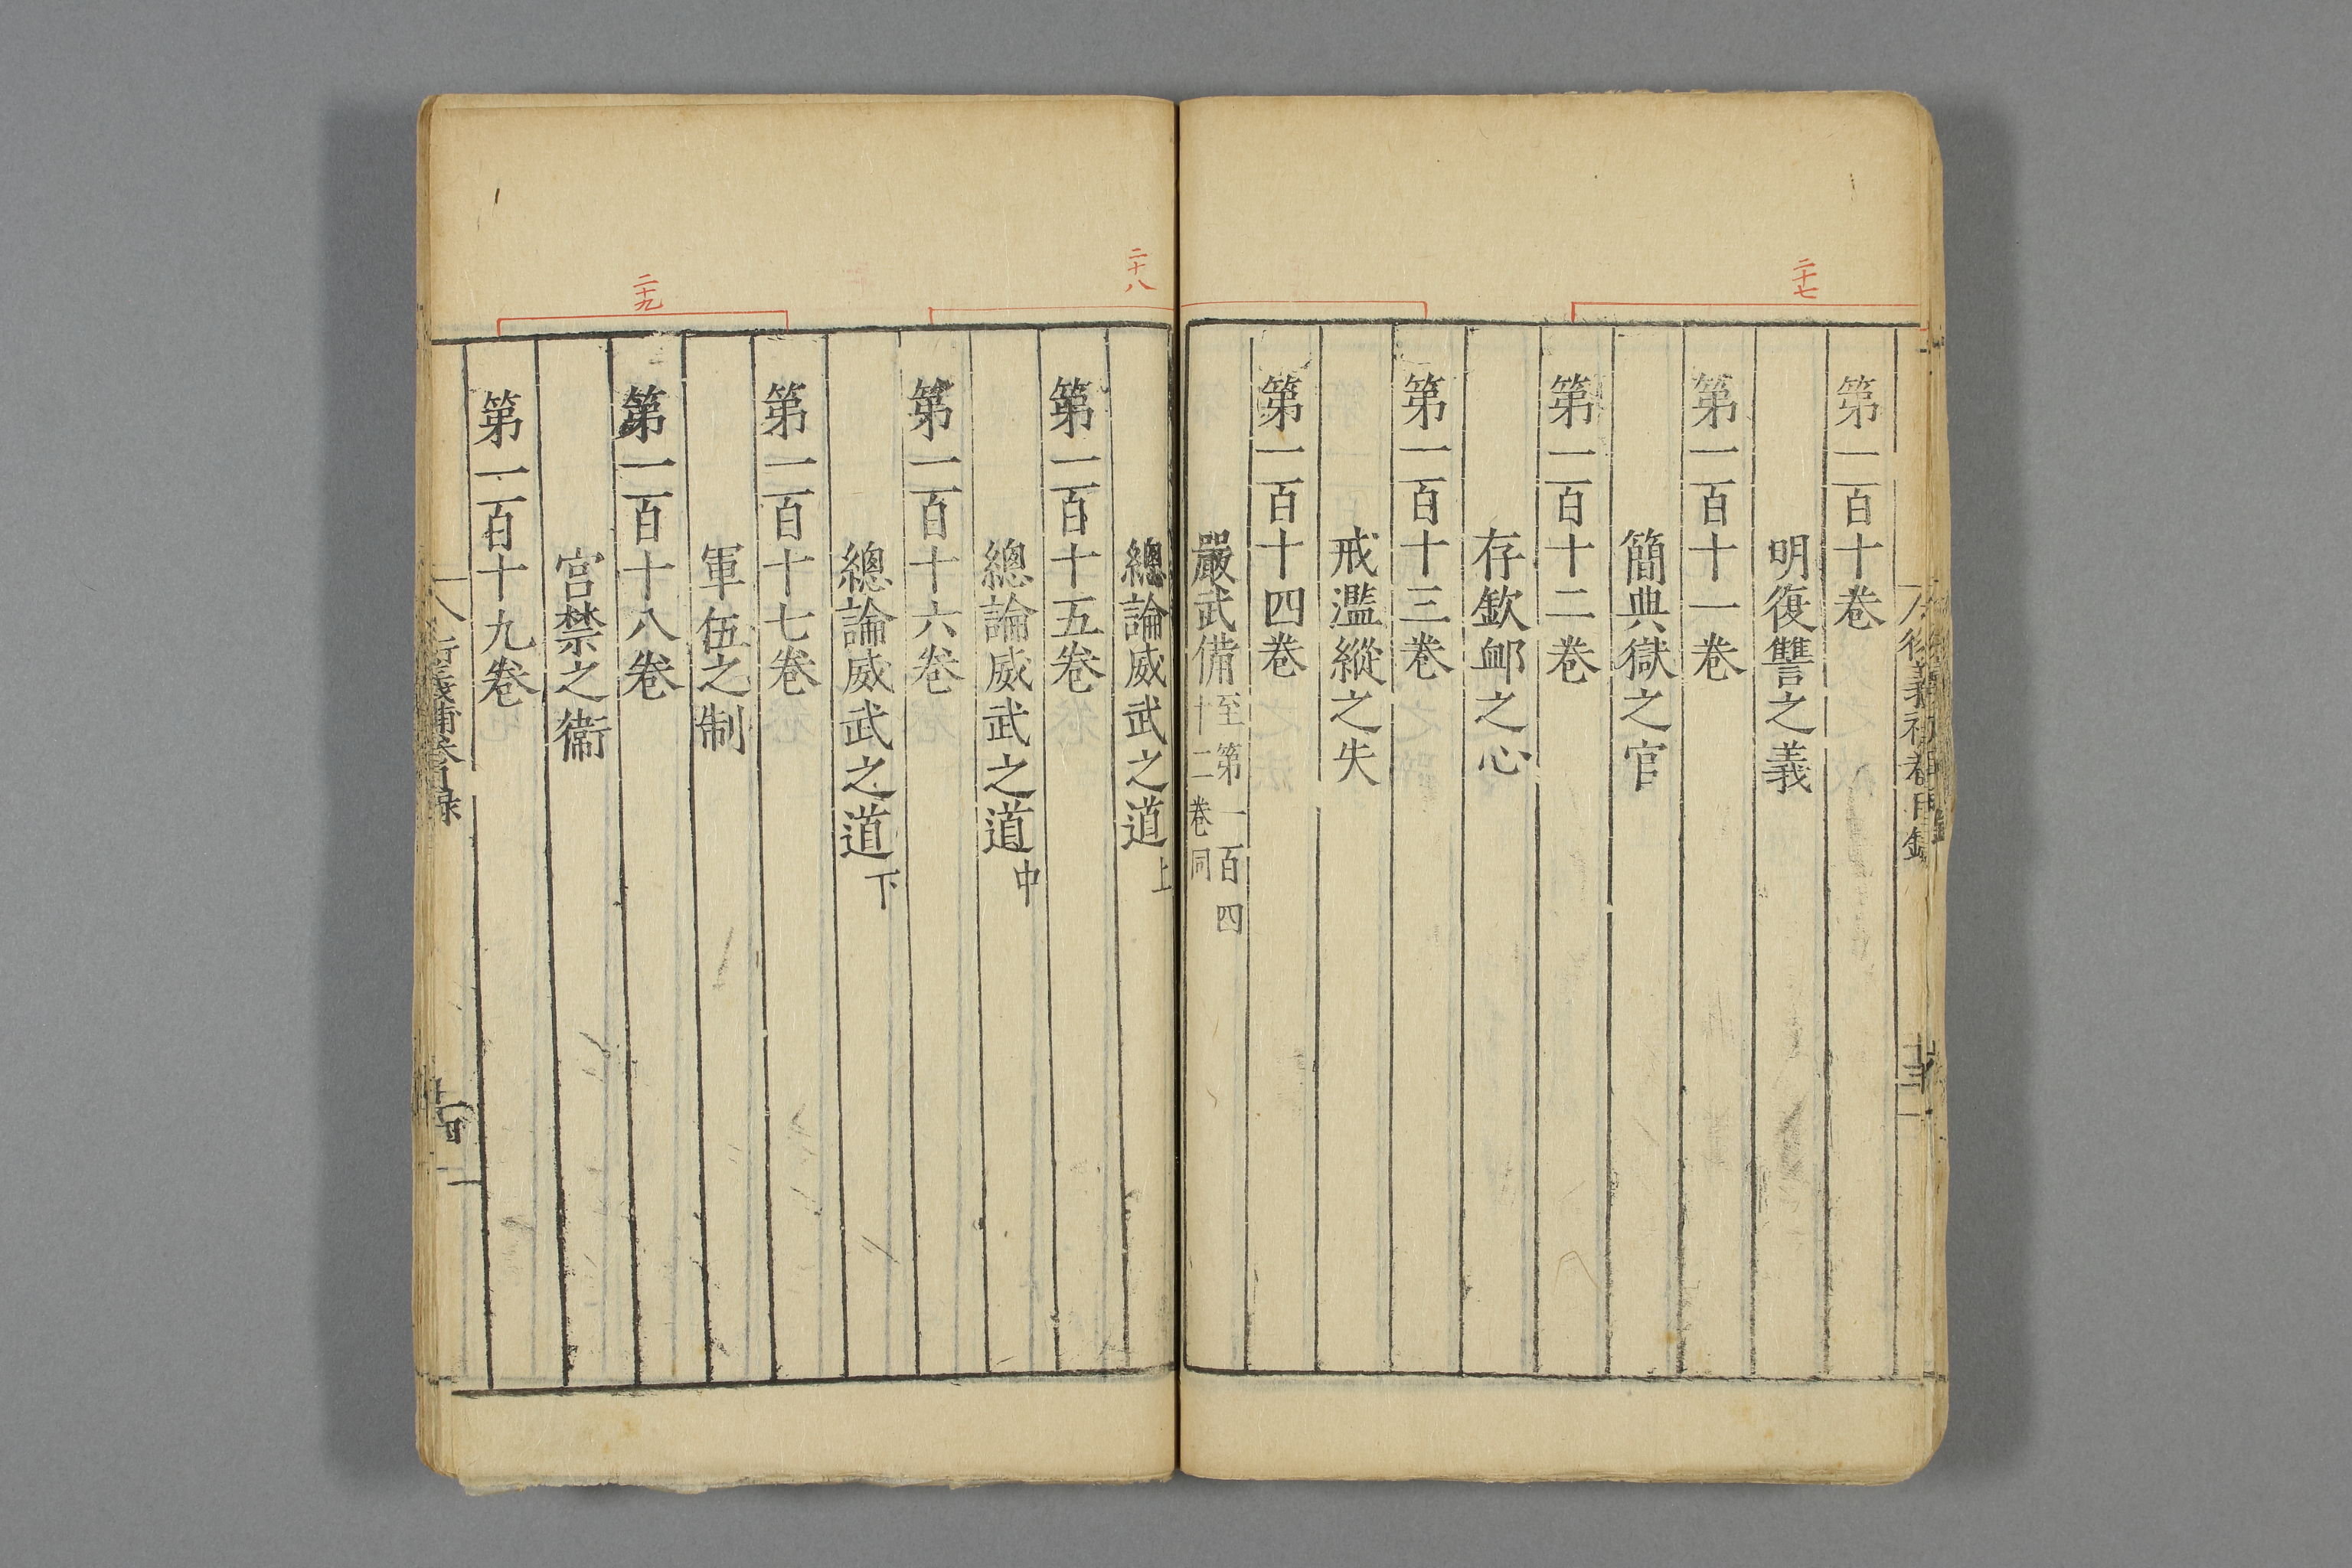 二十七
第一百十卷
明復讐之義
第一百十一卷
簡典獄之官
第一百十二卷
存欽䘏之心
第一百十三卷
戒濫縱之失
第一百十四卷
嚴武備至第一百四
十二卷同
二十八
總論威武之道上
第一百十五卷
總論威武之道中
第一百十六卷
總論威武之道下
第一百十七卷
軍伍之制
第一百十八卷
宫禁之衞
二十九
第一百十九卷